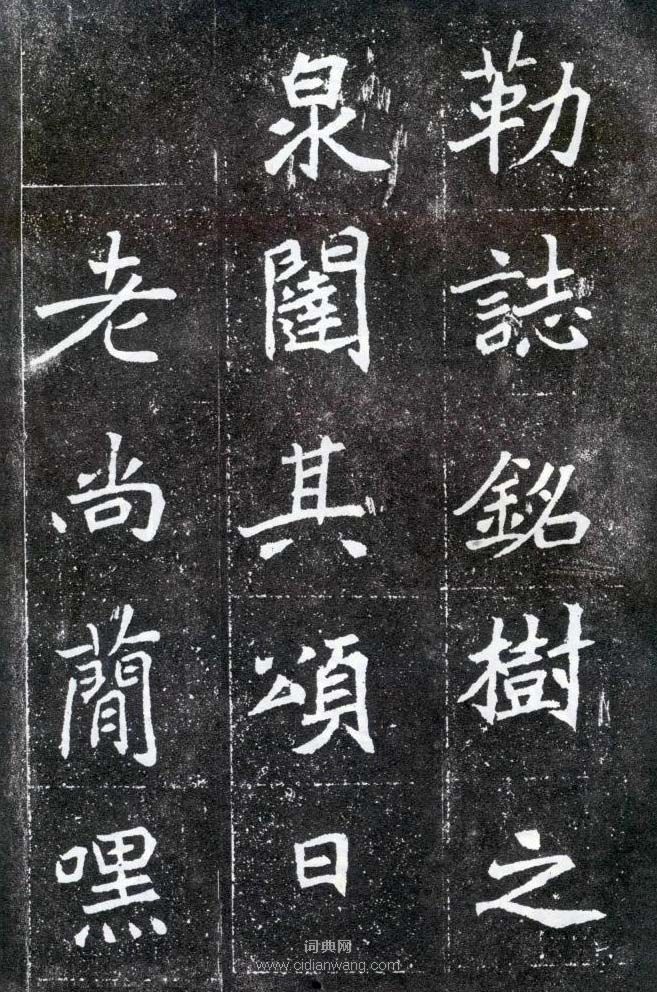 勒誌銘樹之
泉闥其頌曰
老尚蕳嘿
词典网
www.cidianwang.com